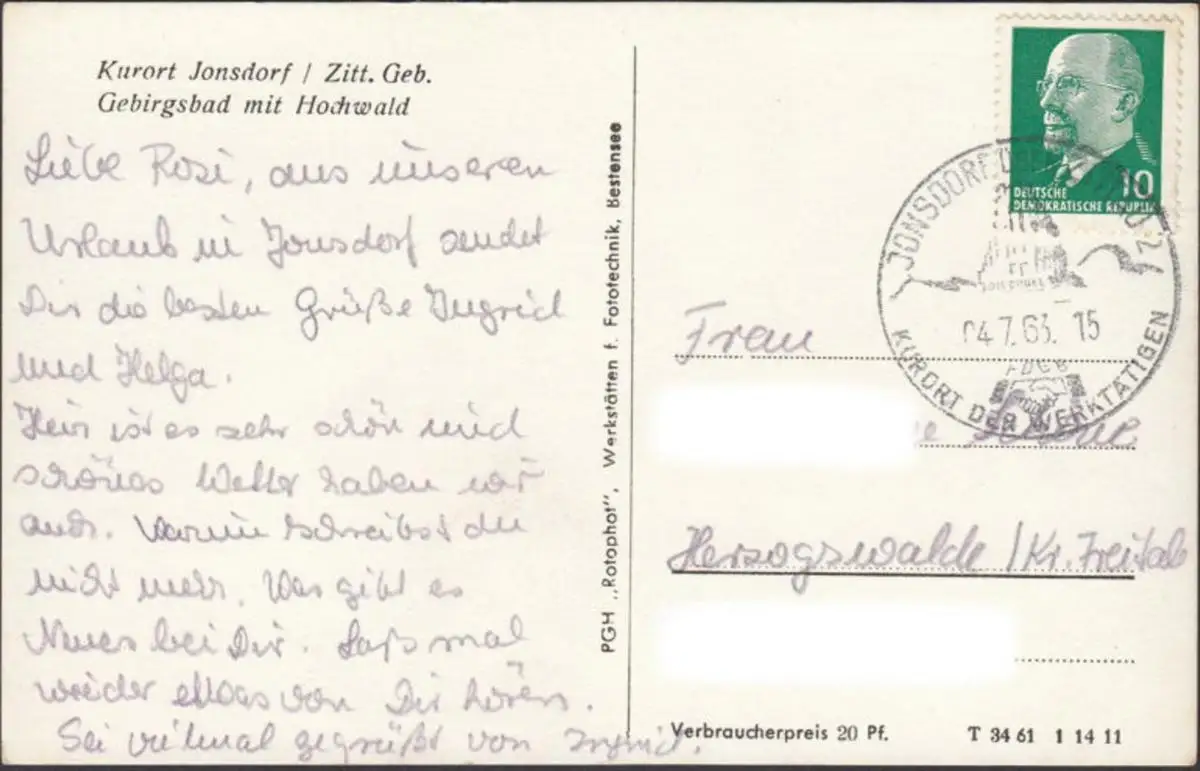 Kurort Jonsdorf / Zitt. Geb.
Gebirgsbad mit Hochwald
Liebe Rosi, aus unseren
Urlaub in Jonsdorf sendet
Dir die besten Grüße Ingrid
und Helga.
Hier ist es sehr schön und
schönes Wetter haben wir
auch. Warum schreibst du
nicht mehr. Was gibt es
Neues bei Dir. Laß mal
wieder etwas von Dir hören.
Sei vielmal gegrüßt von Ingrid.
PGH „Rotophot", Werkstätten f. Fototechnik, Bestensee
10
DEUTSCHE
DEMOKRATISCHE REPUBLIK
JONSDORF
04.7.63. 15
FDGB
KURORT DER WERKTÄTIGEN
Frau
Herzogswalde / Kr. Freital
Verbraucherpreis 20 Pf.
T 34 61 1 14 11